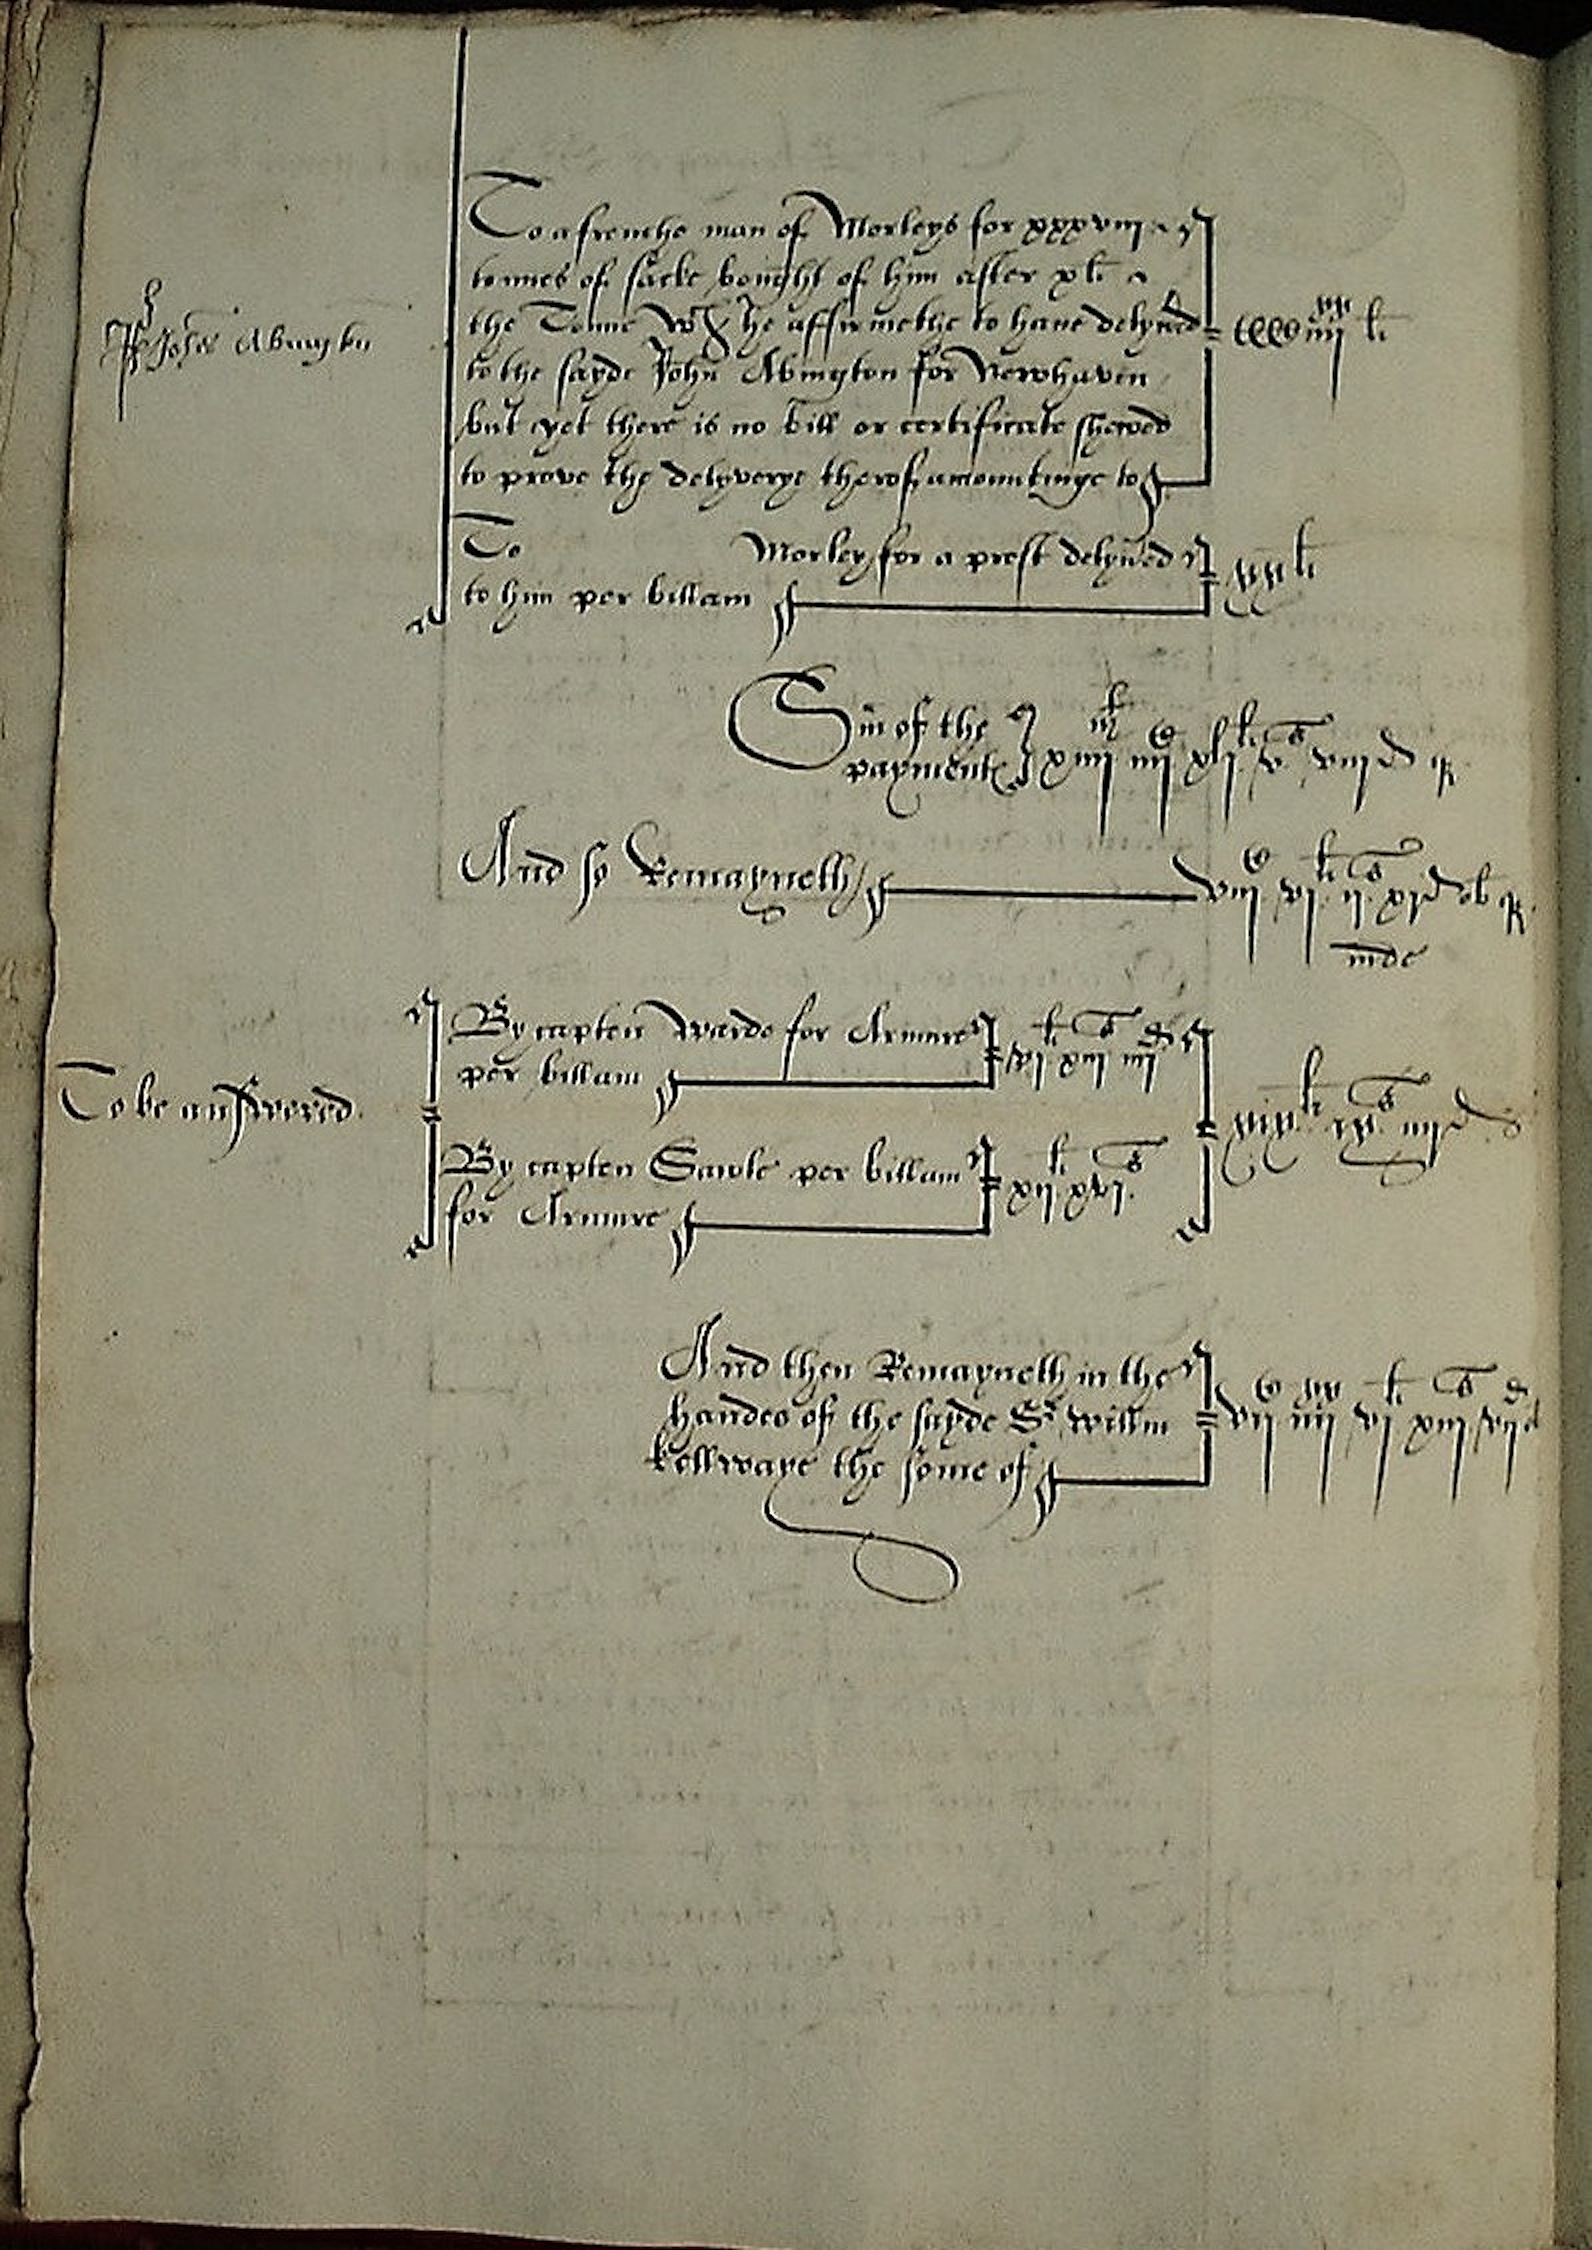 To a frenche man of Morleys for xxxviij
tonnes of sacke bought of him after x li
the Tonne wch he affirmethe to haue delyued
Johes Abington
ccciiijxx li
to the sayde John Abington for Newhaven
but yet there is no bill or certificate shewed
to prove the delyverye therof amountinge to
To Morley for a prest delyued
to him per billam
xx li
Sm of the
payment
xiiij m iiij c xlj li v s viij d q
And so Remayneth
viij c vj li ij s xj d ob q
inde
By capten Warde for Armure
per billam
vj li xiij s iiij d
To be answered
xix li ix s iiij d
By capten Sawle per billam
for Armure
xij li xvj s
And then Remayneth in the
handes of the sayde Sr willm
kellwaye the some of
vij c iiijxx vj li xiij s vij d